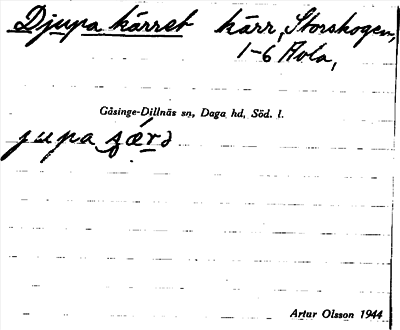 Djupa kärret kärr, Storskogen,
1-6 Åola,
Gåsinge-Dillnäs sn, Daga hd, Söd. l.
Artur Olsson 1944